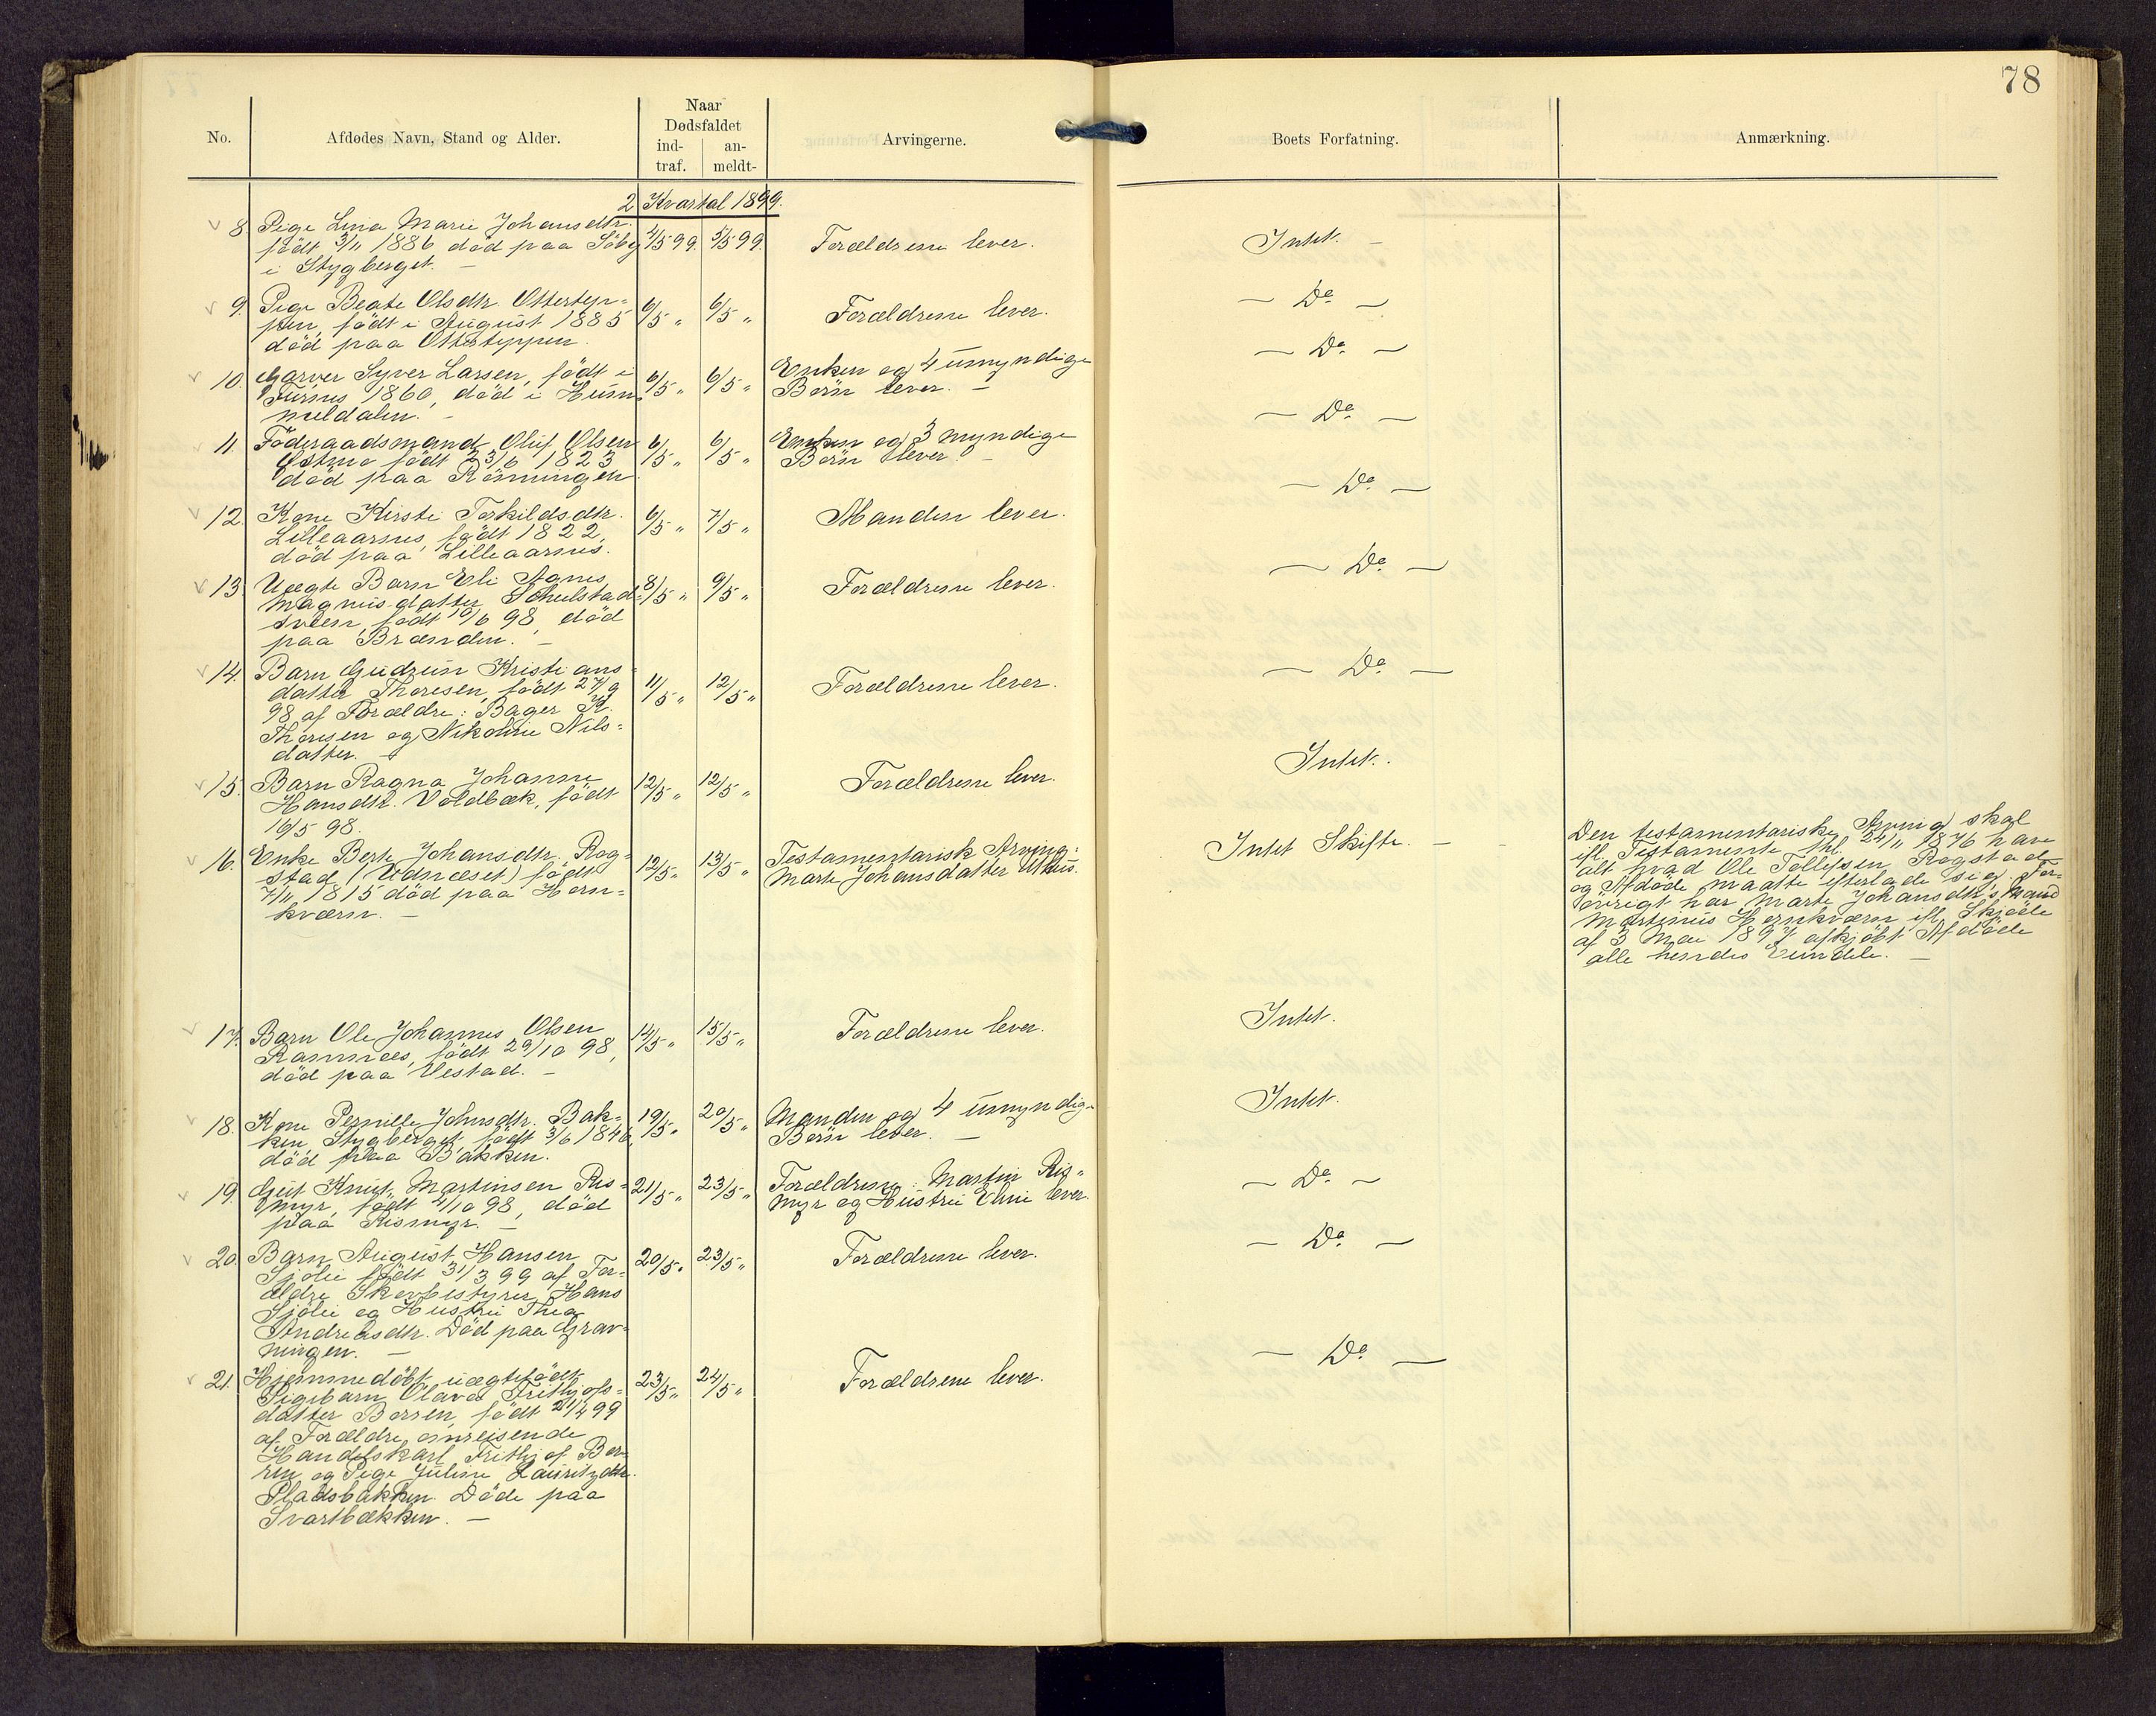 78
No.
Afdødes Navn, Stand og Alder.
Naar
Dødsfaldet
ind-
traf.
an-
meldt-
Arvingerne.
Boets Forfatning.
Anmærkning.
2 Kvartal 1899.
8. Pige Lina Marie Johansdtr. 4/5 99. 5/5 99. Forældrene lever. Intet.
født 3/11 1886 død paa Söby
i Stygberget.
9. Pige Beate Olsdtr. Ottertyp= 6/5 " 6/5 " Forældrene lever. — Do —
pen, født i August 1885
død paa Ottertyppen.
10. Garver Syver Larsen, født i 6/5 " 6/5 " Enken og 4 umyndige — Do —
Furnes 1860, død i Hum= Børn lever.
meldalen.
11. Föderaadsmand Oluf Olsen 6/5 " 6/5 " Enken og 3 myndige — Do —
Östmo født 23/6 1823 Børn lever.
død paa Rönningen
12. Kone Kirsti Torkildsdtr. 6/5 " 7/5 " Manden lever. — Do —
Lilleaarsnes, født 1822,
død paa Lilleaarsnes.
13. Uægte Barn Eli Agnes 8/5 " 9/5 " Forældrene lever. — Do —
Magnusdatter Schulstad=
sveen, født 10/6 98 død
paa Brænden.
14. Barn Gudrun Kristians= 11/5 " 12/5 " Forældrene lever. — Do —
datter Thoresen, født 27/9
98 af Forældre: Bager K.
Thoresen og Nikoline Nils=
datter.
15. Barn Ragna Johanne 12/5 " 12/5 " Forældrene lever. Intet.
Hansdtr. Voldbæk, født
16/5 98.
16. Enke Berte Johansdtr. Rog= 12/5 " 13/5 " Testamentarisk Arving: Intet Skifte.
stad (Udnæset) født Marte Johansdatter Uthus.
7/11 1815 død paa Horn=
kværn.
Den testamentariske Arving skal
ifl. Testamente thl. 24/11 1876 have
alt hvad Ole Tollefsen Rogstad
og Afdøde maatte efterlade sig. For=
övrigt har Marte Johansdtr's Mand
Martinus Hornkværn ifl. Skjöde
af 3 Mai 1897 afkjöbt Afdøde
alle hendes Eiendele.
17. Barn Ole Johannes Olsen 14/5 " 15/5 " Forældrene lever. Intet.
Ramnæs, født 29/10 98,
død paa Vestad.
18. Kone Pernille Johnsdtr. Bak= 19/5 " 20/5 " Manden og 4 umyndige Intet.
ken, Stygberget, født 3/6 1846, Børn lever.
død paa Bakken.
19. Gut Knut Martinsen Ris= 21/5 " 23/5 " Forældrene: Martin Ris= — Do —
myr, født 4/10 98, død myr og Hustru Eline lever.
paa Rismyr.
20. Barn August Hansen 20/5 " 23/5 " Forældrene lever. — Do —
Sjölie født 31/3 99 af For=
ældre Skovbestyrer Hans
Sjölie og Hustru Thea
Andreasdtr. Død paa Grav=
ningen.
21. Hjemmedöbt, uægtefødt 23/5 " 24/5 " Forældrene lever. — Do —
Pigebarn Olava Frithjofs=
datter Borsen, født 21/4 99
af Forældre omreisende
Handelskarl Frithjof Bor=
sen og Pige Juline Lauritzdtr.
Pladsbakken. Døde paa
Svartbækken.